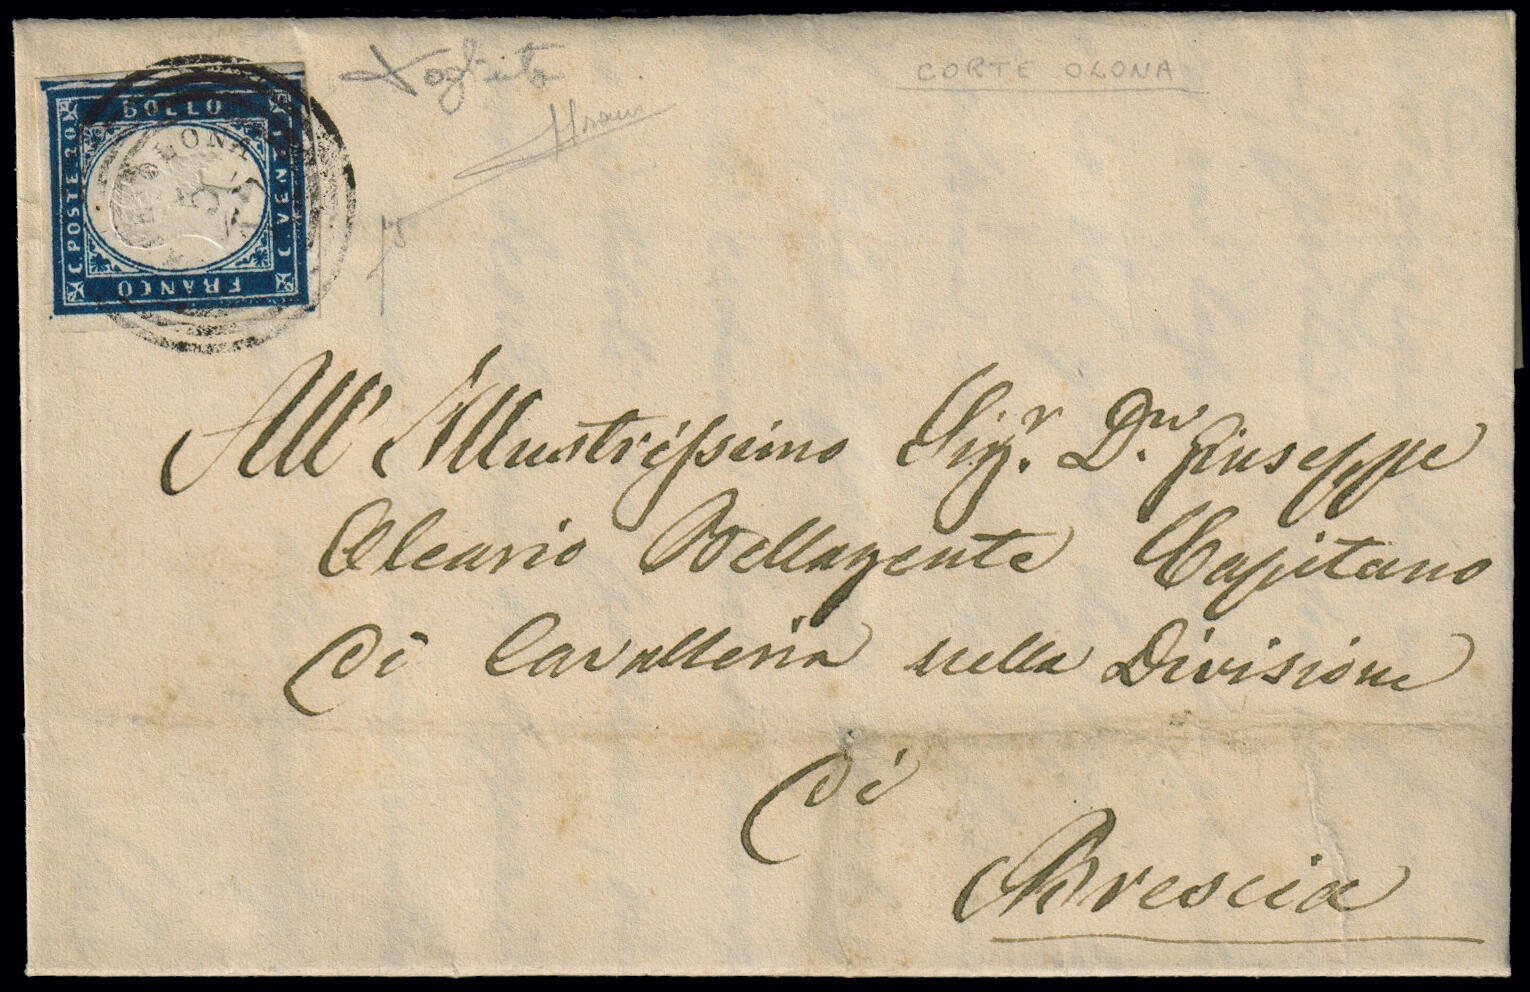 CORTE OLONA
BOLLO
C. POSTE 20
C. VENTI
FRANCO
OLONA
All' Illustrissimo Sigr. Dn. Giuseppe
Oleario Bellagente Capitano
di Cavalleria nella Divisione
di
Brescia